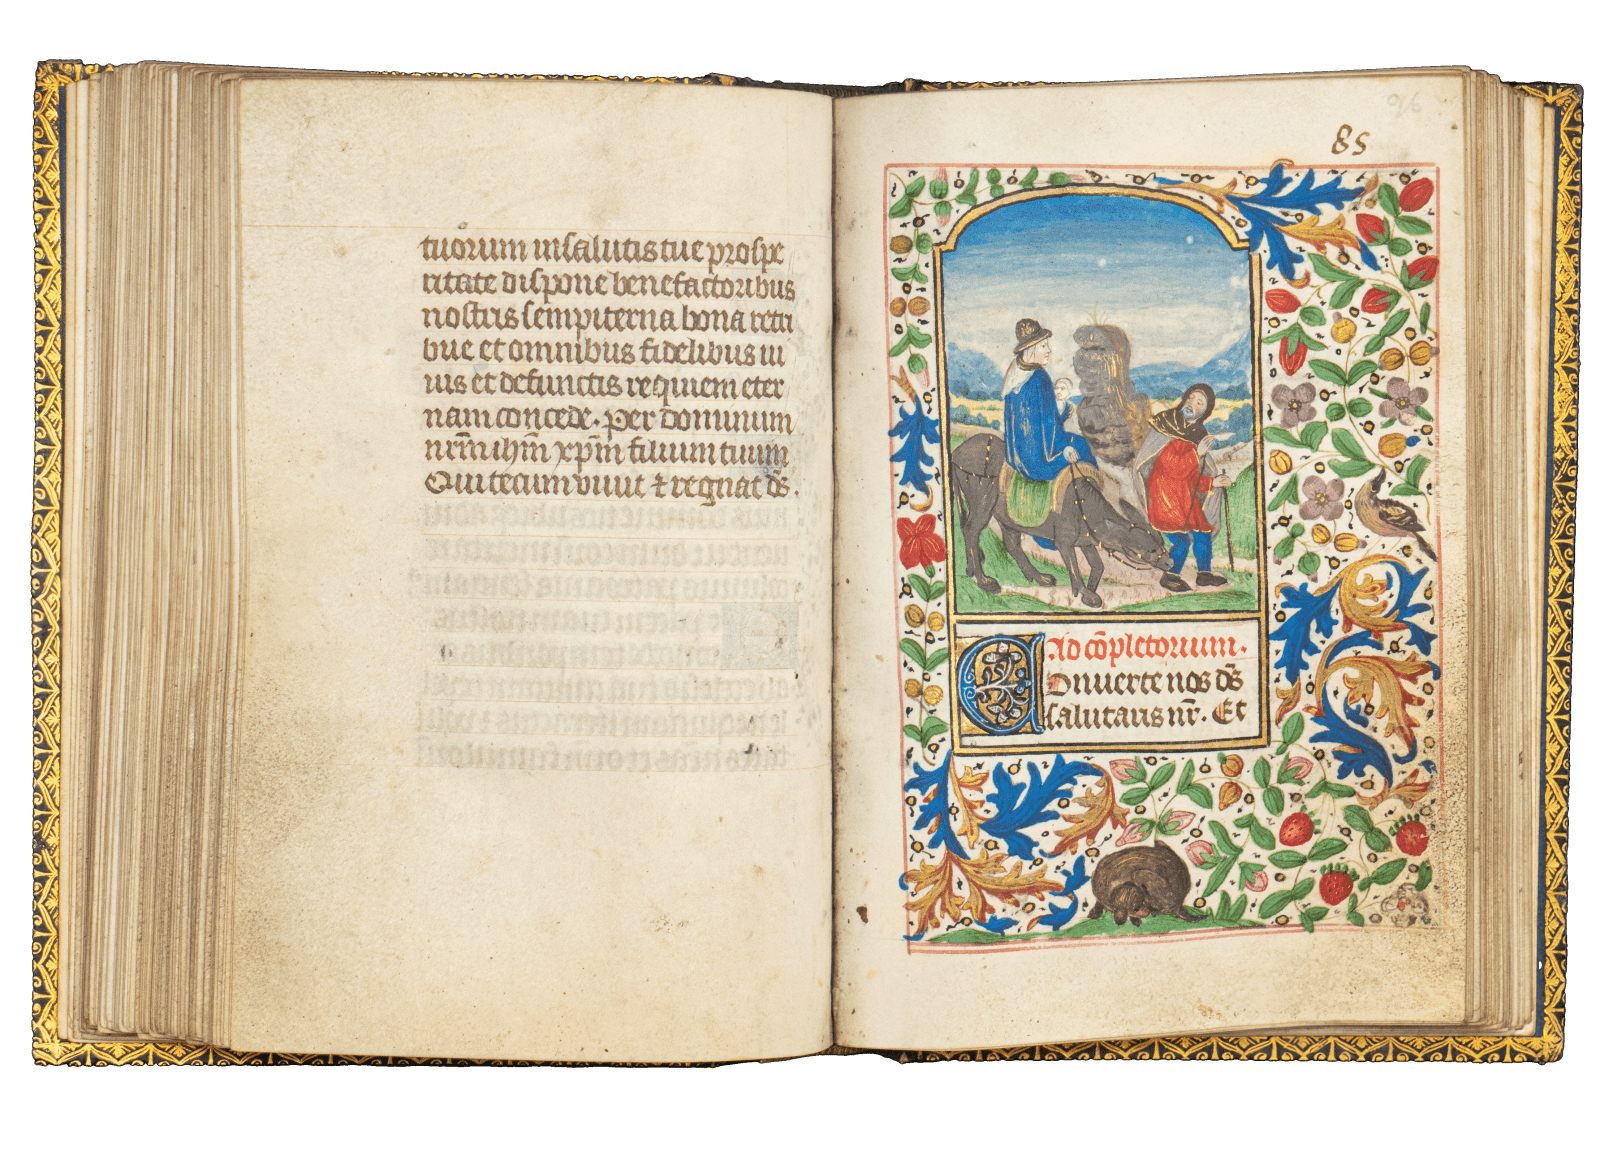 tuorum in salutis tue prospe
ritate dispone benefactoribus
nostris sempiterna bona retri
bue et omnibus fidelibus ui
uis et defunctis requiem eter
nam concede. Per dominum
nr̄m ihm̄ xp̄m filium tuum
Qui tecum viuit ⁊ regnat ds̄.
96
85
Ad cōpletorium.
Conuerte nos ds̄
salutaris nr̄. Et